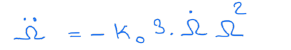 Ω̈ = - K₀ 3. Ω̇ Ω²